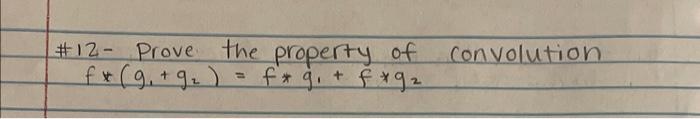 #12- Prove the property of convolution
f*(g₁+g₂) = f*g₁ + f*g₂